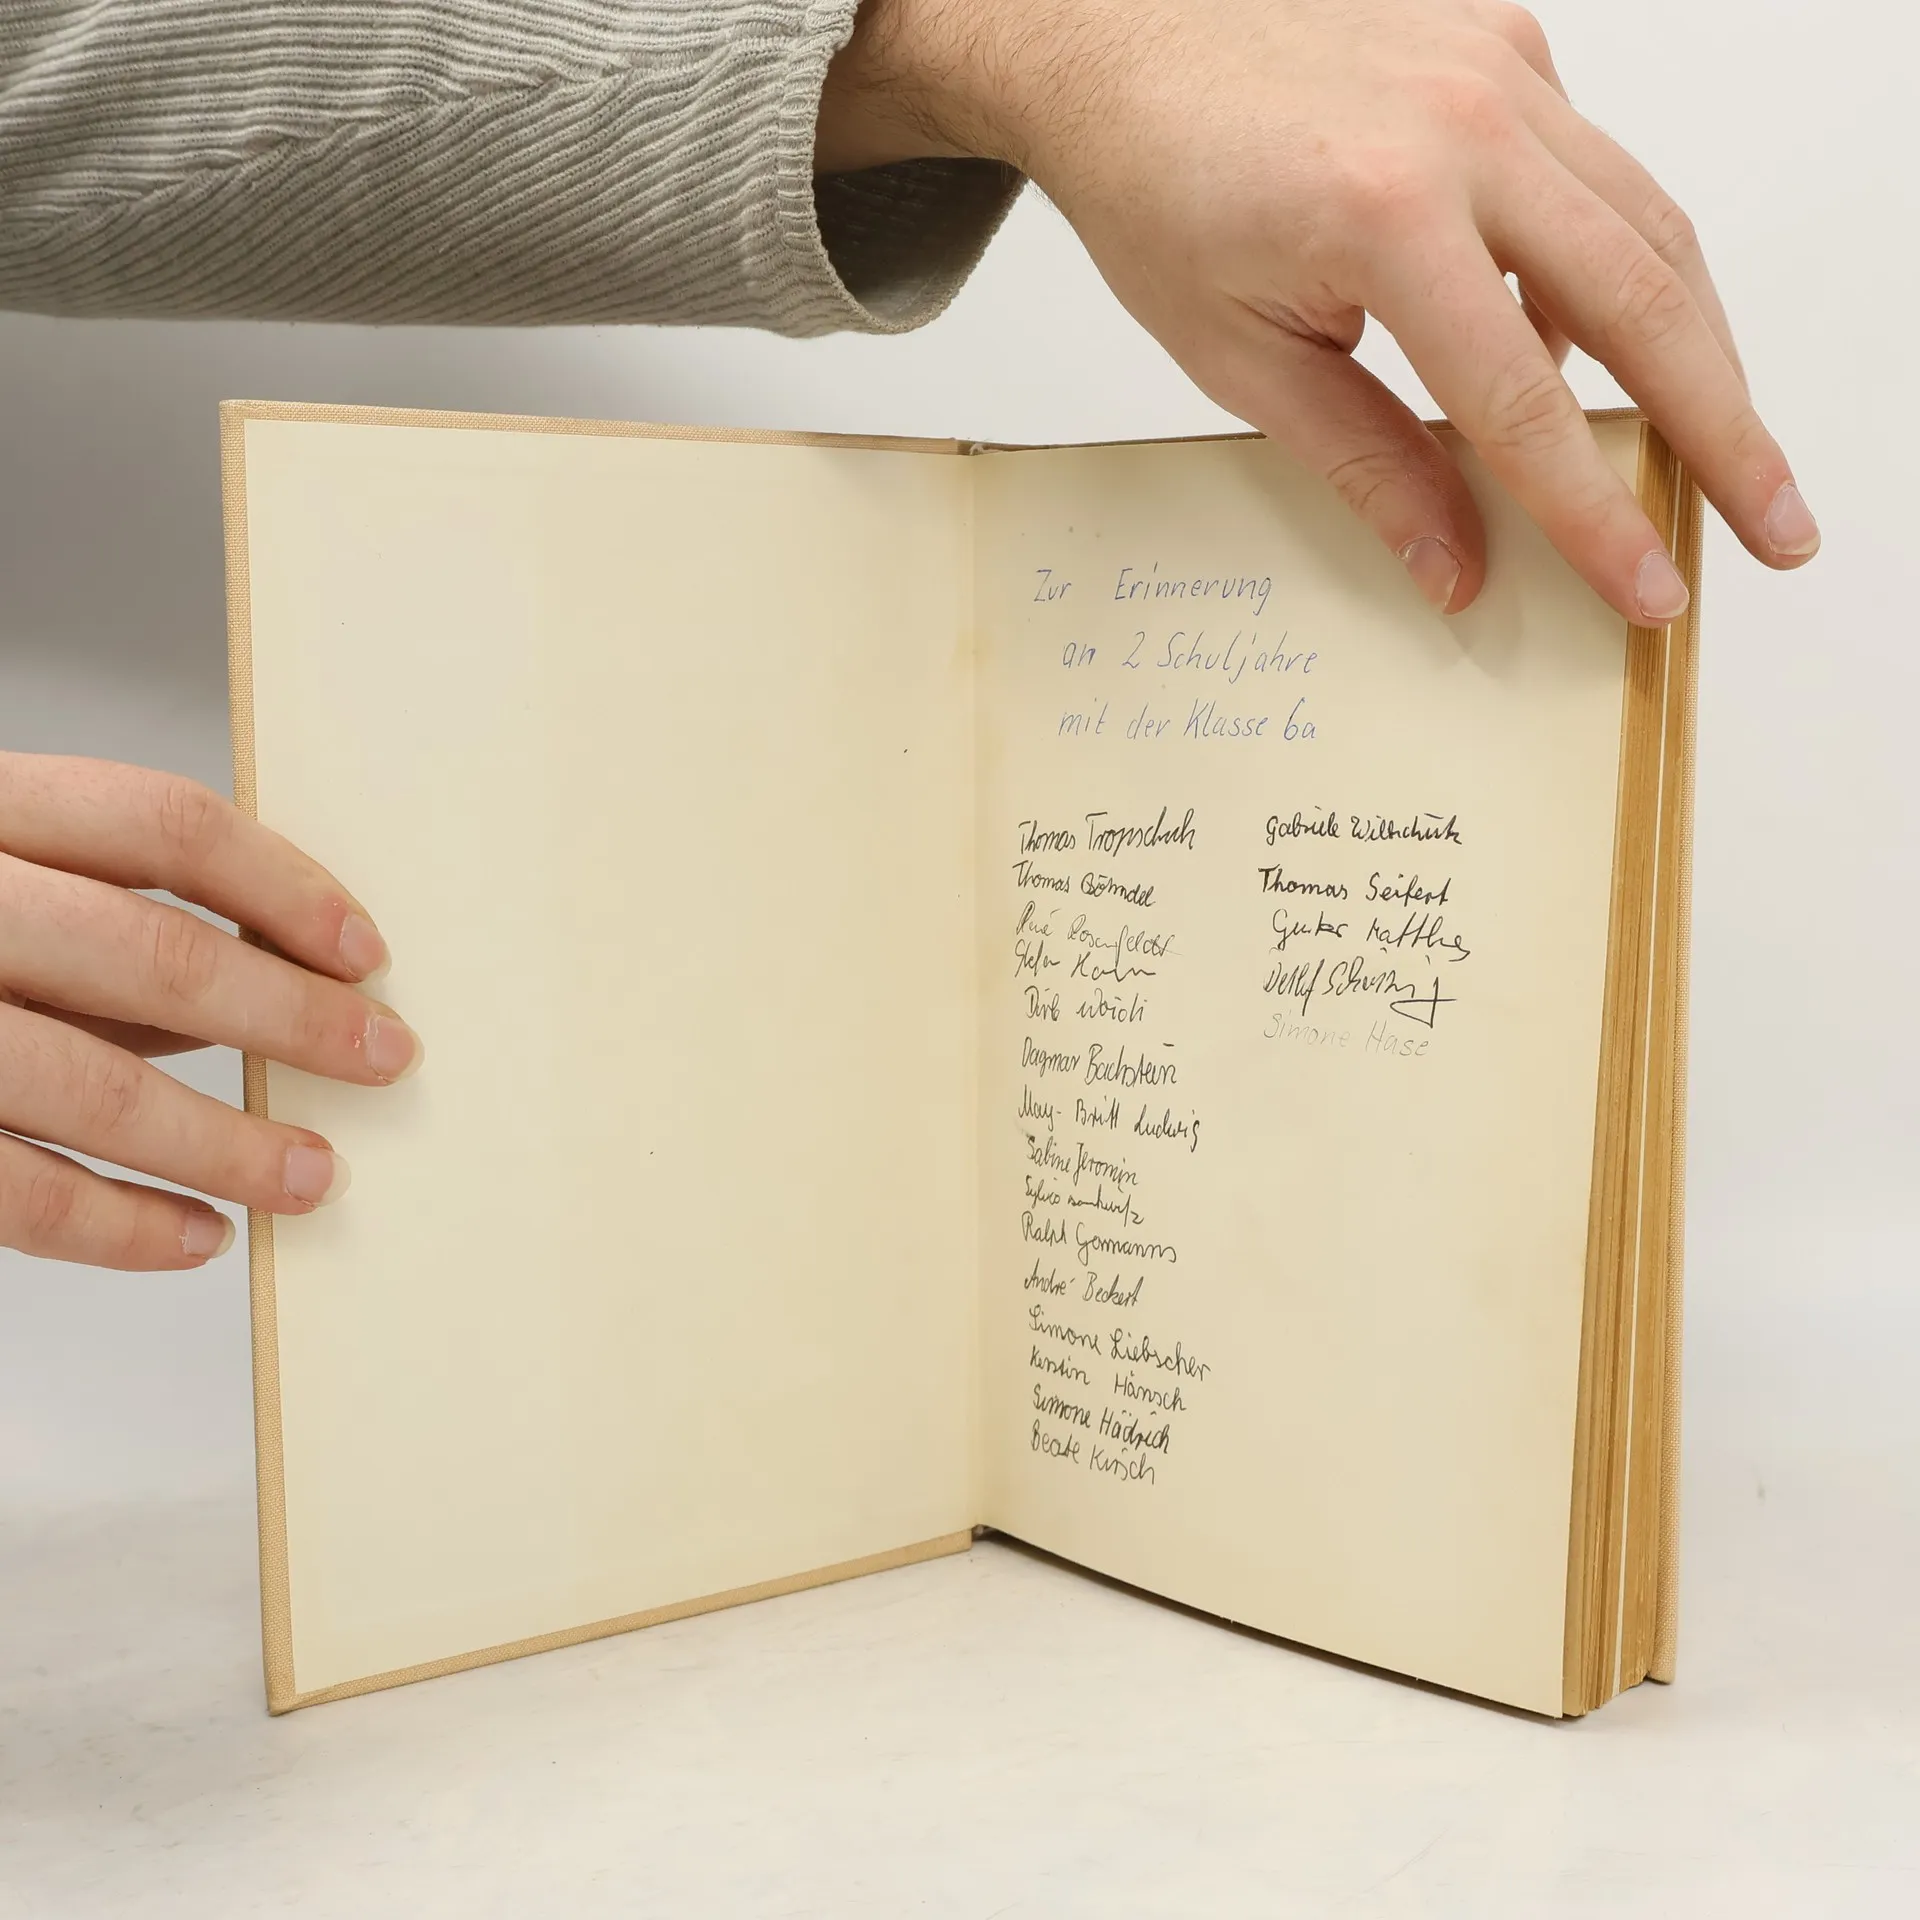 Zur Erinnerung
an 2 Schuljahre
mit der Klasse 6a
Thomas Tropschuh
Thomas
René Rosenfeldt
Stefan
Dirk
Dagmar Bachstein
May-Britt Ludwig
Sabine Jeromin
Ralph
André Beckert
Simone Liebscher
Kerstin Hänsch
Simone Hädrich
Beate Kirsch
Gabriele
Thomas Seifert
Matthes
Detlef
Simone Hase